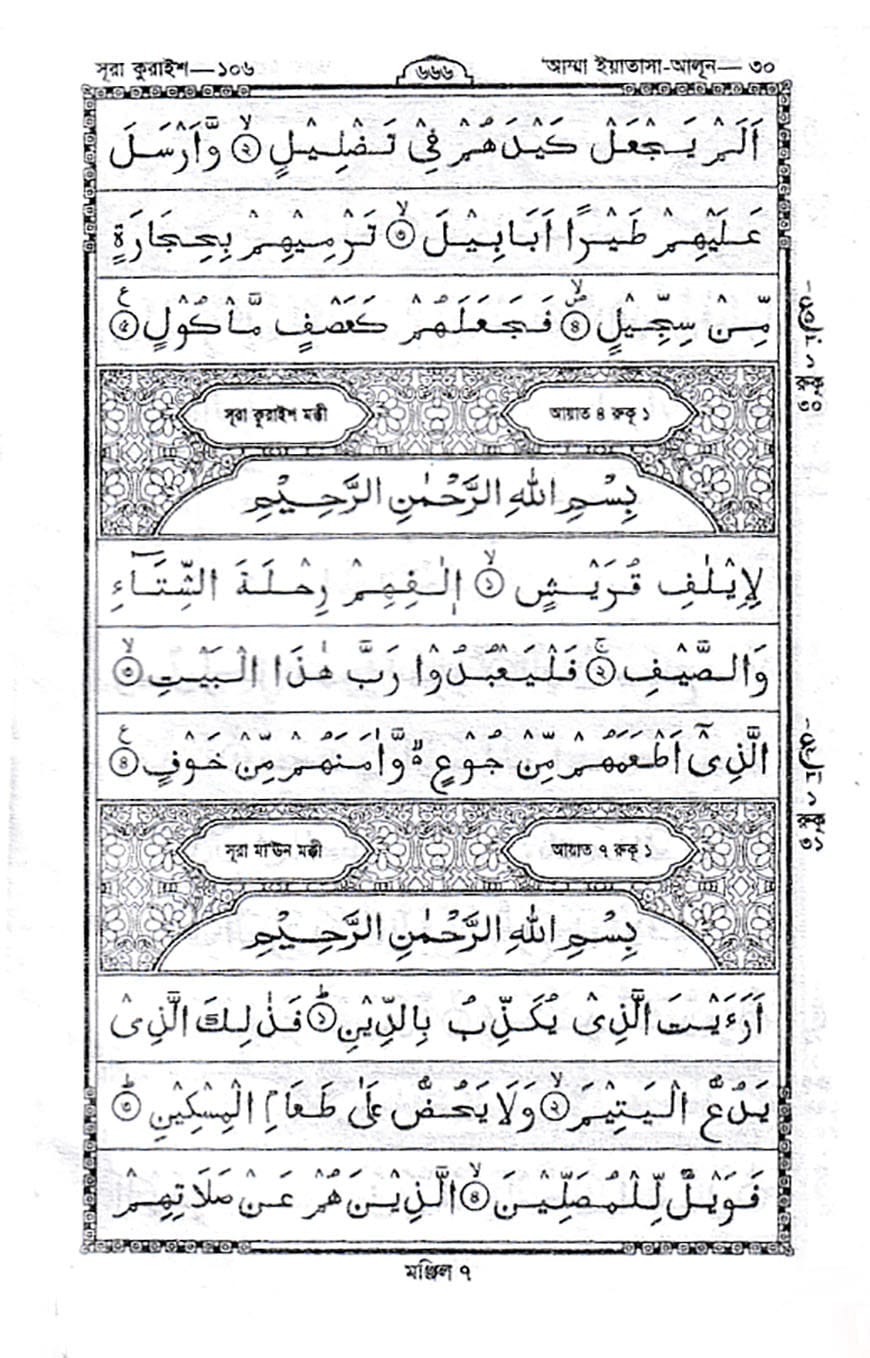 সূরা কুরাইশ—১০৬
৬৬৬
'আম্মা ইয়াতাসা-আলূন— ৩০
اَلَمْ يَجْعَلْ كَيْدَهُمْ فِيْ تَضْلِيْلٍ ۙ২ وَّاَرْسَلَ
عَلَيْهِمْ طَيْرًا اَبَابِيْلَ ۙ৩ تَرْمِيْهِمْ بِحِجَارَةٍ
مِّنْ سِجِّيْلٍ ۙ৪ فَجَعَلَهُمْ كَعَصْفٍ مَّاْكُوْلٍ ৫ ع
রুকু ৩০
সূরা কুরাইশ মক্কী
আয়াত ৪ রুকূ ১
بِسْمِ اللهِ الرَّحْمٰنِ الرَّحِيْمِ
لِاِيْلٰفِ قُرَيْشٍ ۙ১ اٖلٰفِهِمْ رِحْلَةَ الشِّتَآءِ
وَالصَّيْفِ ۚ২ فَلْيَعْبُدُوْا رَبَّ هٰذَا الْبَيْتِ ۙ৩
الَّذِيْٓ اَطْعَمَهُمْ مِّنْ جُوْعٍ ۙ وَّاٰمَنَهُمْ مِّنْ خَوْفٍ ৪ ع
রুকু ৩১
সূরা মা'ঊন মক্কী
আয়াত ৭ রুকূ ১
بِسْمِ اللهِ الرَّحْمٰنِ الرَّحِيْمِ
اَرَءَيْتَ الَّذِيْ يُكَذِّبُ بِالدِّيْنِ ؕ১ فَذٰلِكَ الَّذِيْ
يَدُعُّ الْيَتِيْمَ ۙ২ وَلَا يَحُضُّ عَلٰى طَعَامِ الْمِسْكِيْنِ ؕ৩
فَوَيْلٌ لِّلْمُصَلِّيْنَ ۙ৪ الَّذِيْنَ هُمْ عَنْ صَلَاتِهِمْ
মঞ্জিল ৭